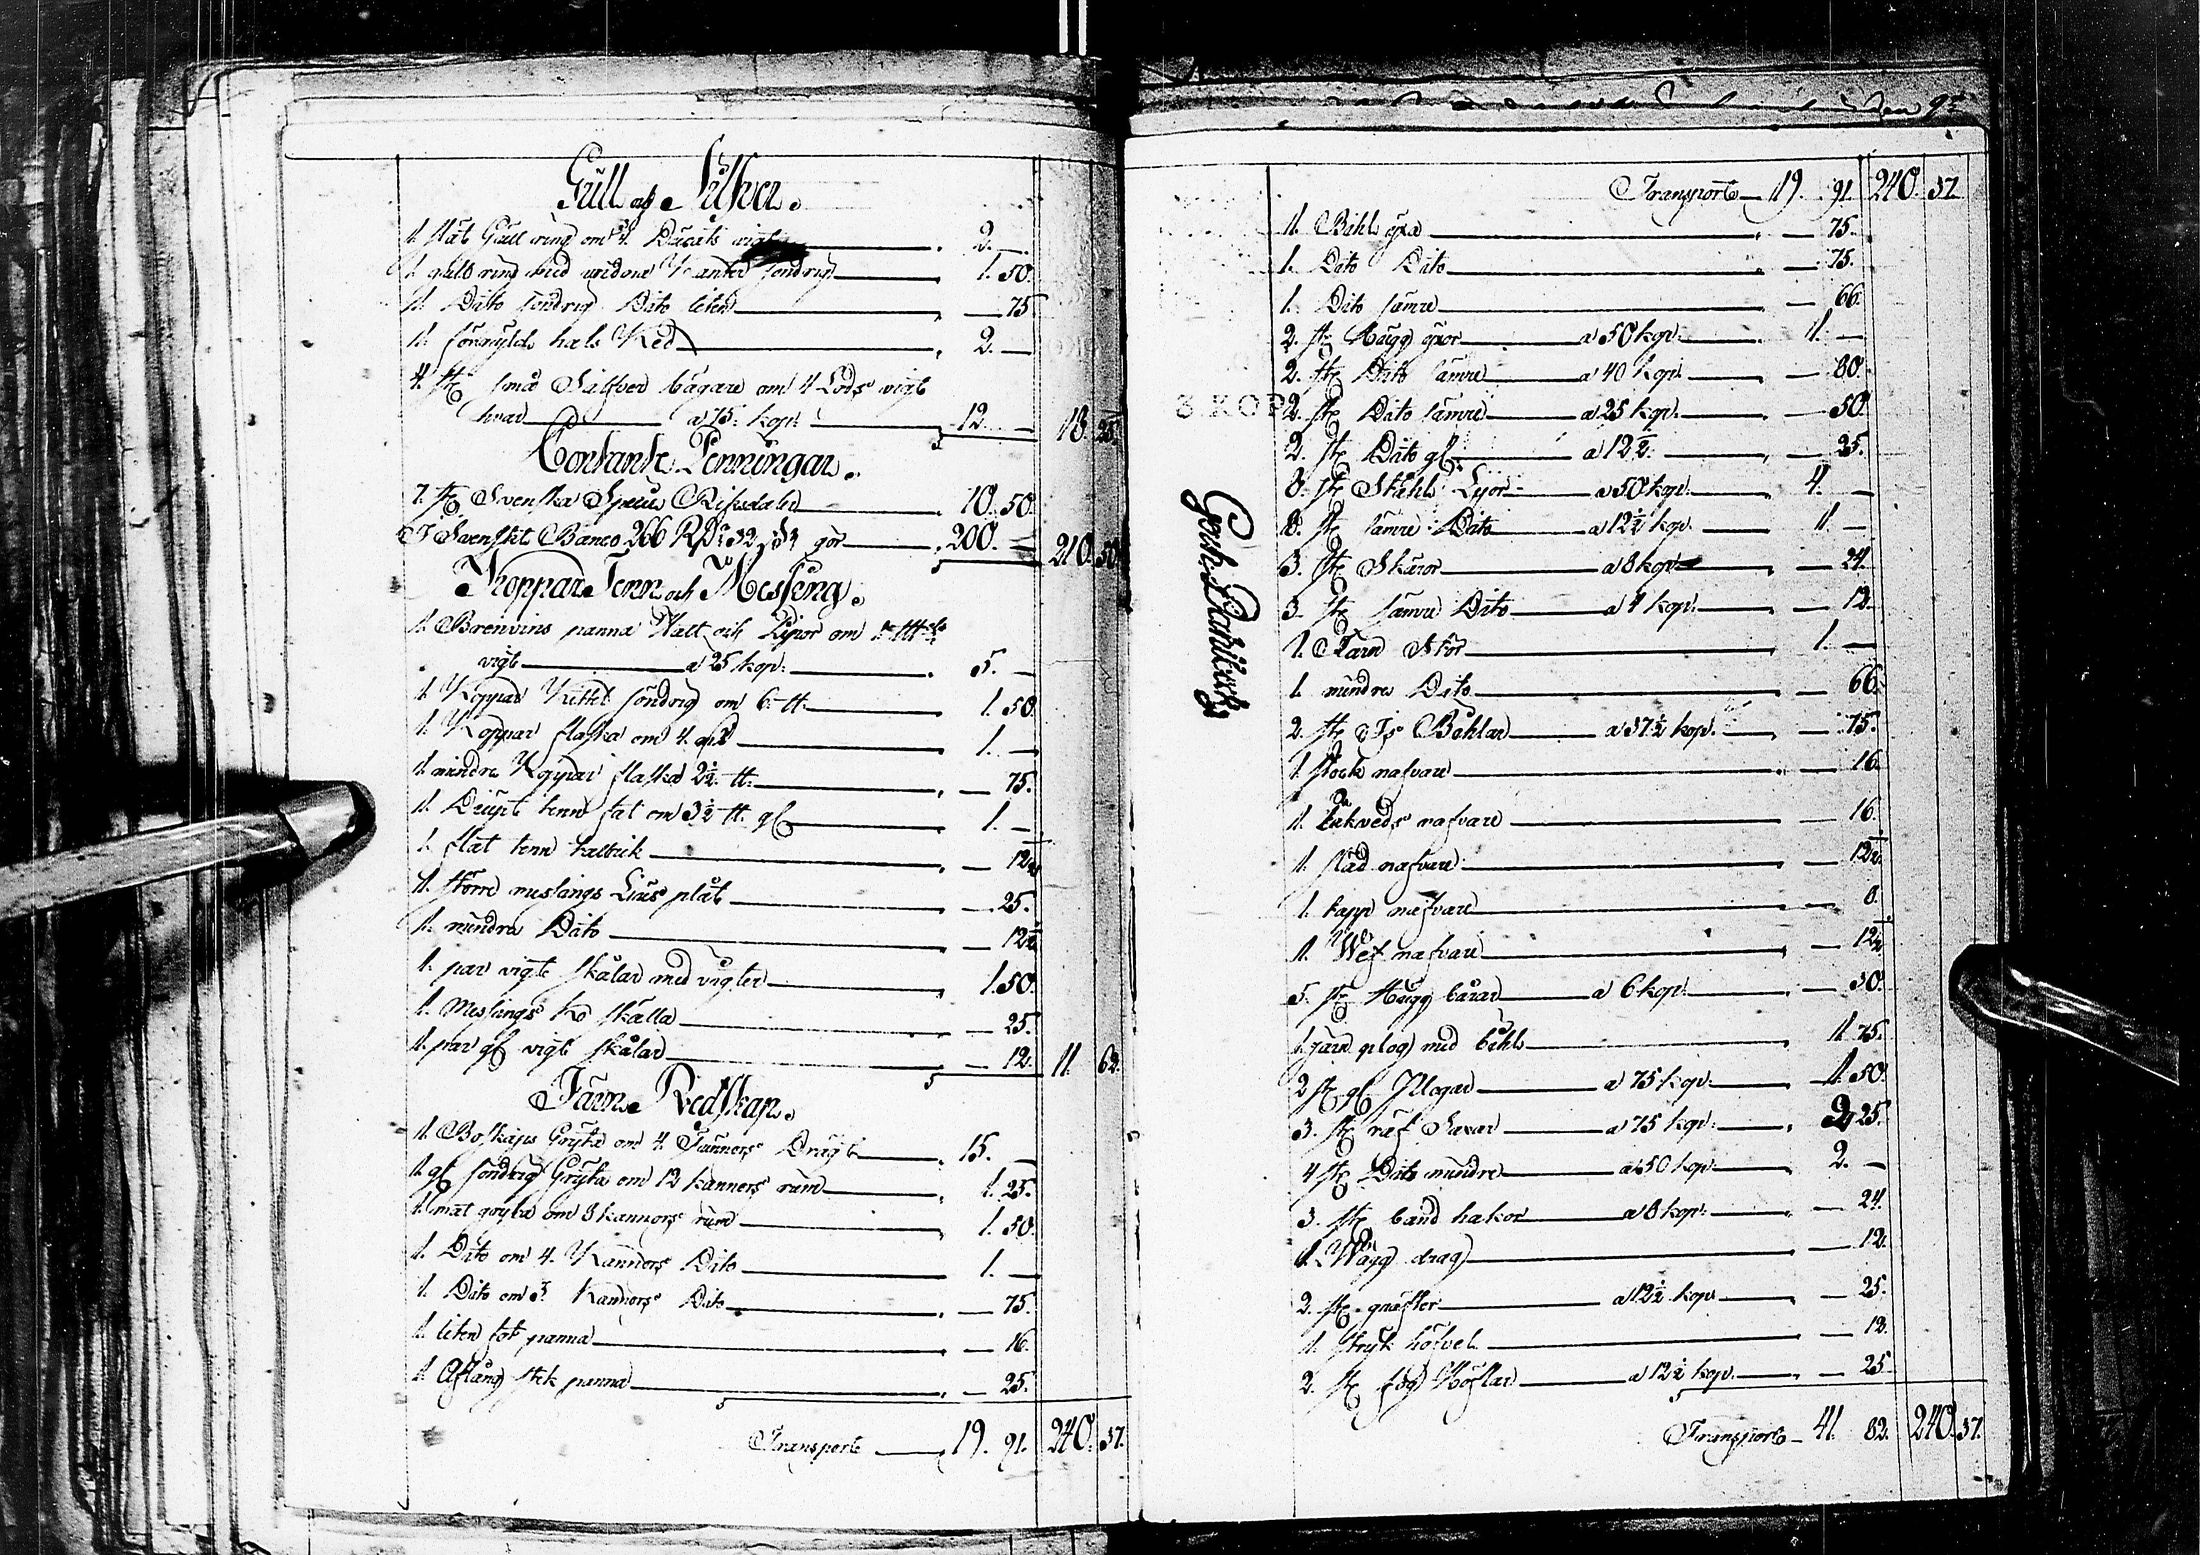 Gull och Silfver.
1. slät Gull ring om 1. Ducats vigt 2. —
1. gull ring med vridne Kanter söndrig 1. 50.
1. Dito söndrig Dito liten — 75
1. förgyld hals Ked 2. —
4. st små Silfver bägare om 4 Lods vigt
hvar a 75. kop: 12. — 18. 25.
Contante Penningar.
7. st Svenska Specie Riksdaler 10. 50.
I Svenskt Banco 266 RD 32 gör 200. — 210. 50
Koppar Tenn och Messing.
1. Brenvins panna Hatt och Pipor om
vigt a 25 kop: 5. —
1. Koppar Kittel söndrig om 6. tt. 1. 50.
1. Koppar flaska om 4. 1. —
1. mindre Koppar flaska 2½ tt. — 75.
1. Diupt tenn fat om 3½ tt. gl 1. —
1. flat tenn taltrik — 12½
1. större messings Lius plåt — 25.
1. mindre Dito — 12½
1. par vigt skålar med vigter 1. 50.
1. Messings ko skälla — 25.
1. par gl vigt skålar — 12. 11. 62.
Järn Redskap.
1. Boskaps Gryta om 4. Tunnors Drägt 15. —
1. gl söndrig Gryta om 12 kannors rum 1. 25.
1. mat gryta om 8 kannors rum 1. 50.
1. Dito om 4. Kannors Dito 1. —
1. Dito om 3. Kannors Dito — 75.
1. liten fot panna — 16.
1. Aflång stek panna — 25.
Transport 19. 91. 240. 37.
den 9de
Transport 19. 91. 240. 37.
1. Bihl yxa — 75.
1. Dito Dito — 75.
1. Dito sämre — 66.
2. st Hugg yxor a 50 kop. 1. —
2. st Dito sämre a 40 kop. — 80.
3 KOP
2. st Dito sämre a 25 kop. — 50.
2. st Dito gl a 12½ — 25.
8. st Ståhl Lijor a 50 kop. 4. —
8. st sämre Dito a 12½ kop. 1. —
3. st Skäror a 8 kop. — 24.
3. st sämre Dito a 4 kop. — 12.
1. Järn Stör 1. —
1. mindre Dito — 66.
2. st Is Bihlar a 37½ kop. — 75.
1. stock nafvare — 16.
1. nafvare — 16.
1. släd nafvare — 12½
1. tapp nafvare — 8.
1. Wef nafvare — 12½
5. st Hugg bårar a 6 kop. — 30.
1. järn plog med bihl 1. 25.
2 st gl Plogar a 75 kop. 1. 50.
3. st räf Saxar a 75 kop. 2. 25.
4 st Dito mindre a 50 kop. 2. —
3. st band hakor a 8 kop. — 24.
1. Wägg drag — 12.
2. st gräfter a 12½ kop. — 25.
1. stryk höfvel — 12.
2. st fog Höflar a 12½ kop. — 25.
Transport 41. 82. 240. 37.